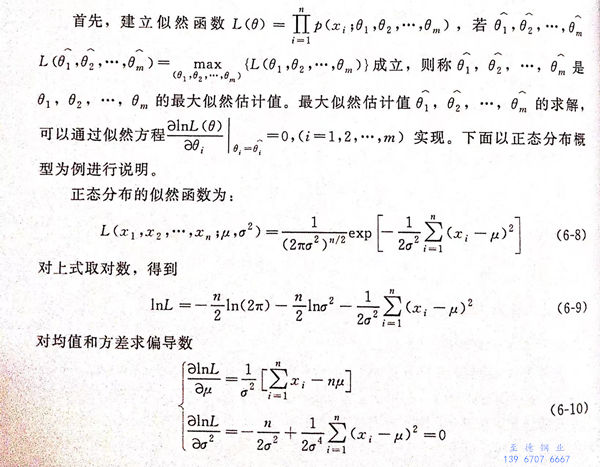 首先，建立似然函数 L(θ) = ∏_{i=1}^{n} p(x_i;θ_1,θ_2,…,θ_m)，若 \hat{θ_1},\hat{θ_2},…,\hat{θ_m}
L(\hat{θ_1},\hat{θ_2},…,\hat{θ_m}) = max_{(θ_1,θ_2,…,θ_m)} {L(θ_1,θ_2,…,θ_m)}成立，则称 \hat{θ_1}，\hat{θ_2}，…，\hat{θ_m} 是
θ_1，θ_2，…，θ_m 的最大似然估计值。最大似然估计值 \hat{θ_1}，\hat{θ_2}，…，\hat{θ_m} 的求解，
可以通过似然方程 ∂lnL(θ)/∂θ_i |_{θ_i=\hat{θ_i}} =0,(i=1,2,…,m) 实现。下面以正态分布概
型为例进行说明。
正态分布的似然函数为：
L(x_1,x_2,…,x_n;μ,σ^2) = 1/(2πσ^2)^{n/2} exp[-1/(2σ^2) ∑_{i=1}^{n} (x_i-μ)^2] (6-8)
对上式取对数，得到
lnL = -n/2 ln(2π) - n/2 lnσ^2 - 1/(2σ^2) ∑_{i=1}^{n} (x_i-μ)^2 (6-9)
对均值和方差求偏导数
∂lnL/∂μ = 1/σ^2 [∑_{i=1}^{n} x_i - nμ]
∂lnL/∂σ^2 = -n/(2σ^2) + 1/(2σ^4) ∑_{i=1}^{n} (x_i-μ)^2 = 0 (6-10)
至德钢业
139 6707 6667